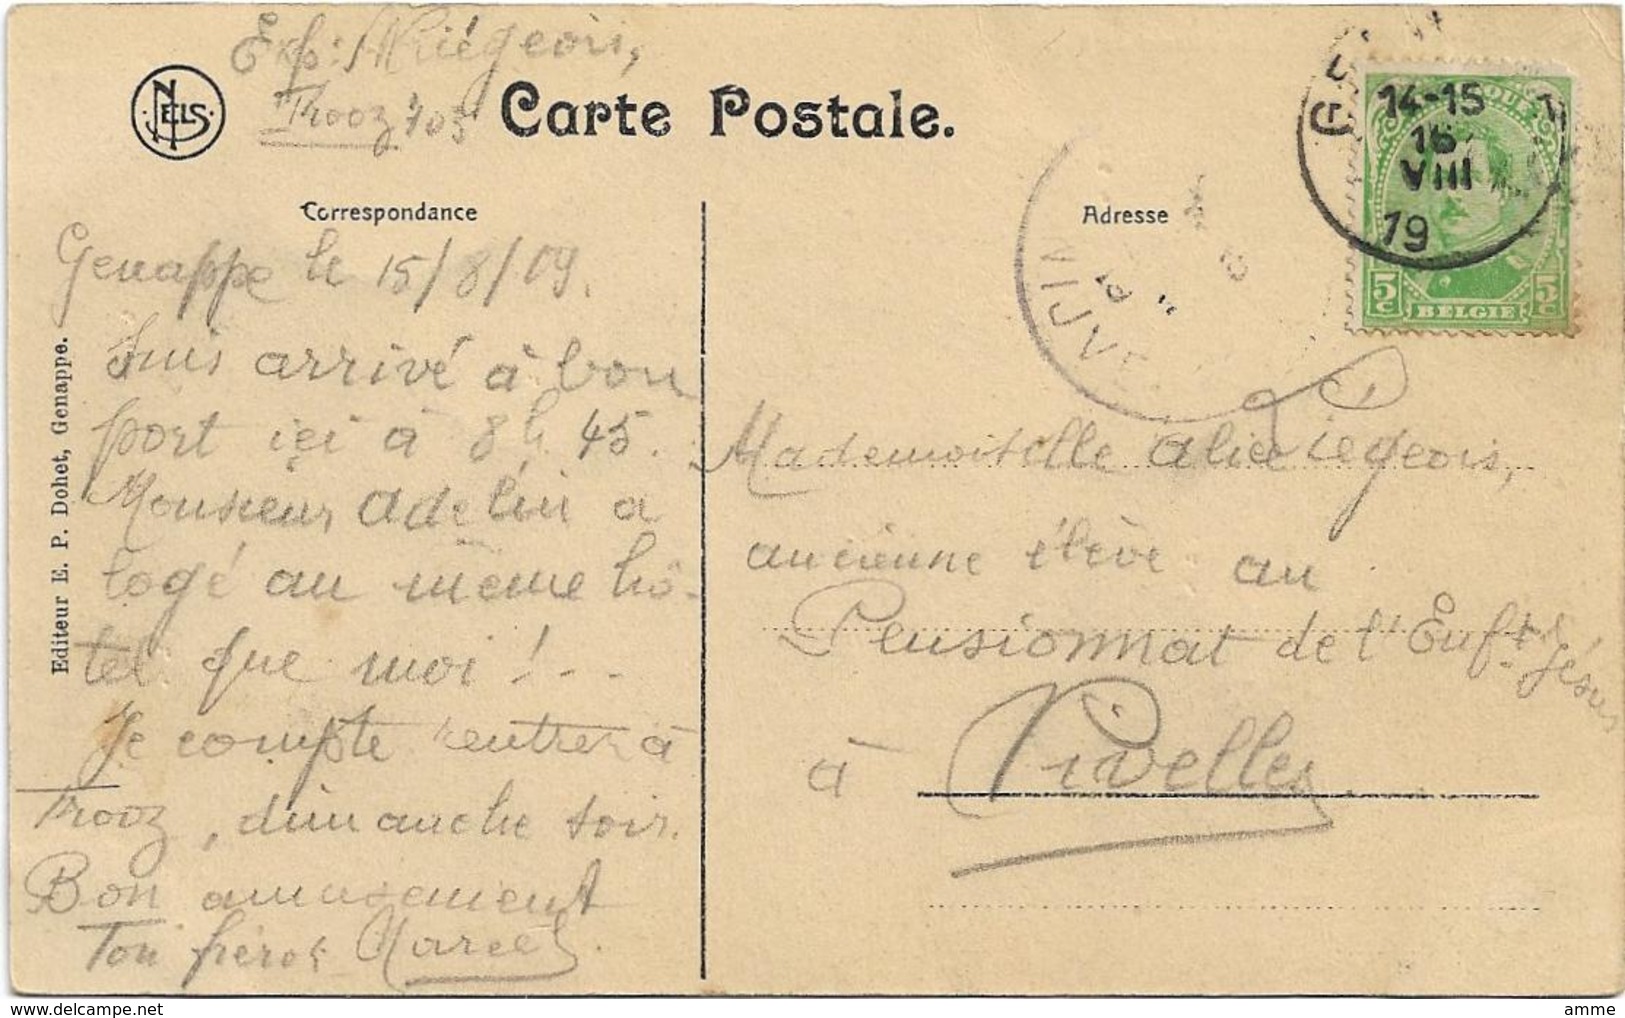 Exp: M Liégeois,
Trooz 105
NELS
Carte Postale.
14-15
16
VIII
19
5c BELGIE 5c
Correspondance
Adresse
Genappe le 15/8/19.
Suis arrivé à bon
port ici à 8 h 45.
Monsieur Adelin a
logé au même hô-
tel que moi !...
Je compte rentrer à
Trooz, dimanche soir.
Bon amusement
Ton frérot Marcel.
Mademoiselle Alice Liégeois,
ancienne élève au
Pensionnat de l'Enft. Jésus
à Nivelles
Editeur E. P. Dohet, Genappe.
www.delcampe.net
amme